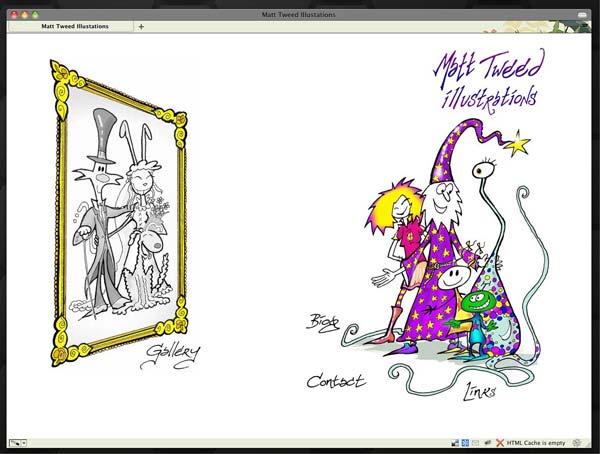 Matt Tweed Illustations
Matt Tweed Illustations
Matt Tweed
illustrations
Gallery
Biog
Contact
Links
HTML Cache is empty